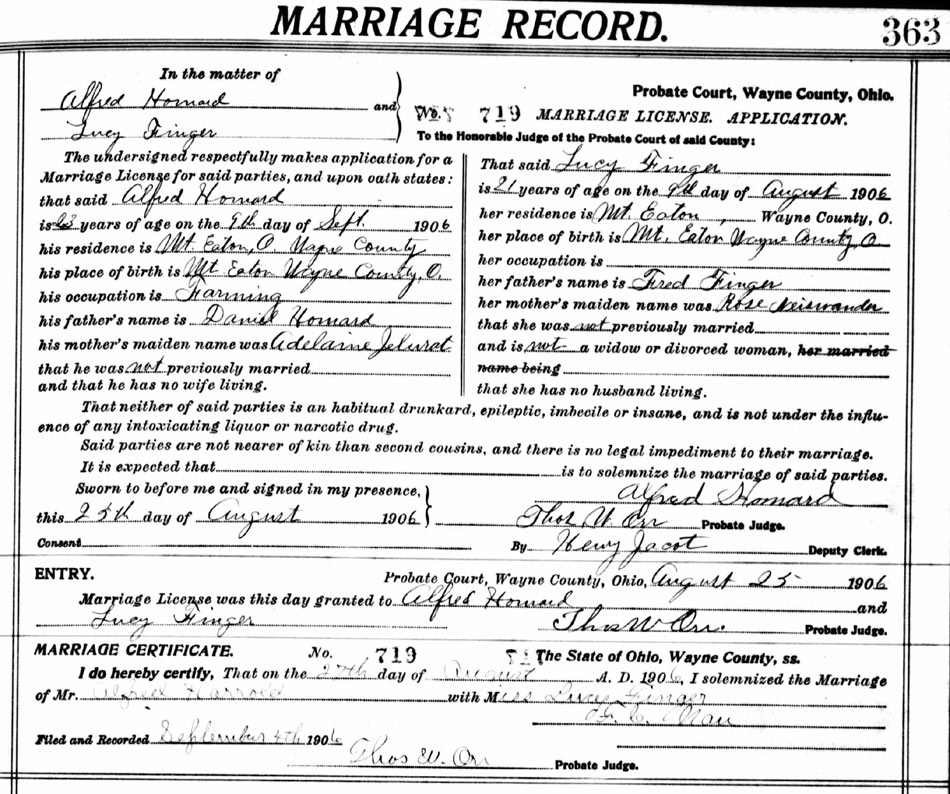 MARRIAGE RECORD.
363
In the matter of
Alfred Homard and
Lucy Finger
Probate Court, Wayne County, Ohio.
No. 719 MARRIAGE LICENSE. APPLICATION.
To the Honorable Judge of the Probate Court of said County:
The undersigned respectfully makes application for a
Marriage License for said parties, and upon oath states:
that said Alfred Homard
is 23 years of age on the 9th day of Sept. 1906
his residence is Mt. Eaton, O. Wayne County
his place of birth is Mt Eaton Wayne County, O.
his occupation is Farming
his father's name is Daniel Homard
his mother's maiden name was Adelaine
that he was not previously married
and that he has no wife living.
That said Lucy Finger
is 21 years of age on the 9th day of August 1906
her residence is Mt. Eaton, Wayne County, O.
her place of birth is Mt. Eaton Wayne County, O.
her occupation is
her father's name is Fred Finger
her mother's maiden name was Rose Neiswander
that she was not previously married
and is not a widow or divorced woman, her married
name being
that she has no husband living.
That neither of said parties is an habitual drunkard, epileptic, imbecile or insane, and is not under the influ-
ence of any intoxicating liquor or narcotic drug.
Said parties are not nearer of kin than second cousins, and there is no legal impediment to their marriage.
It is expected that is to solemnize the marriage of said parties.
Sworn to before me and signed in my presence,
Alfred Homard
this 25th day of August 1906
Thos W. Orr Probate Judge.
Consent
By Henry Jacot Deputy Clerk.
ENTRY.
Probate Court, Wayne County, Ohio, August 25 1906
Marriage License was this day granted to Alfred Homard and
Lucy Finger
Thos W Orr. Probate Judge.
MARRIAGE CERTIFICATE. No. 719 The State of Ohio, Wayne County, ss.
I do hereby certify, That on the 27th day of August A. D. 1906, I solemnized the Marriage
of Mr. Alfred with Miss Lucy Finger
Filed and Recorded September 4th 1906
Thos W. Orr Probate Judge.